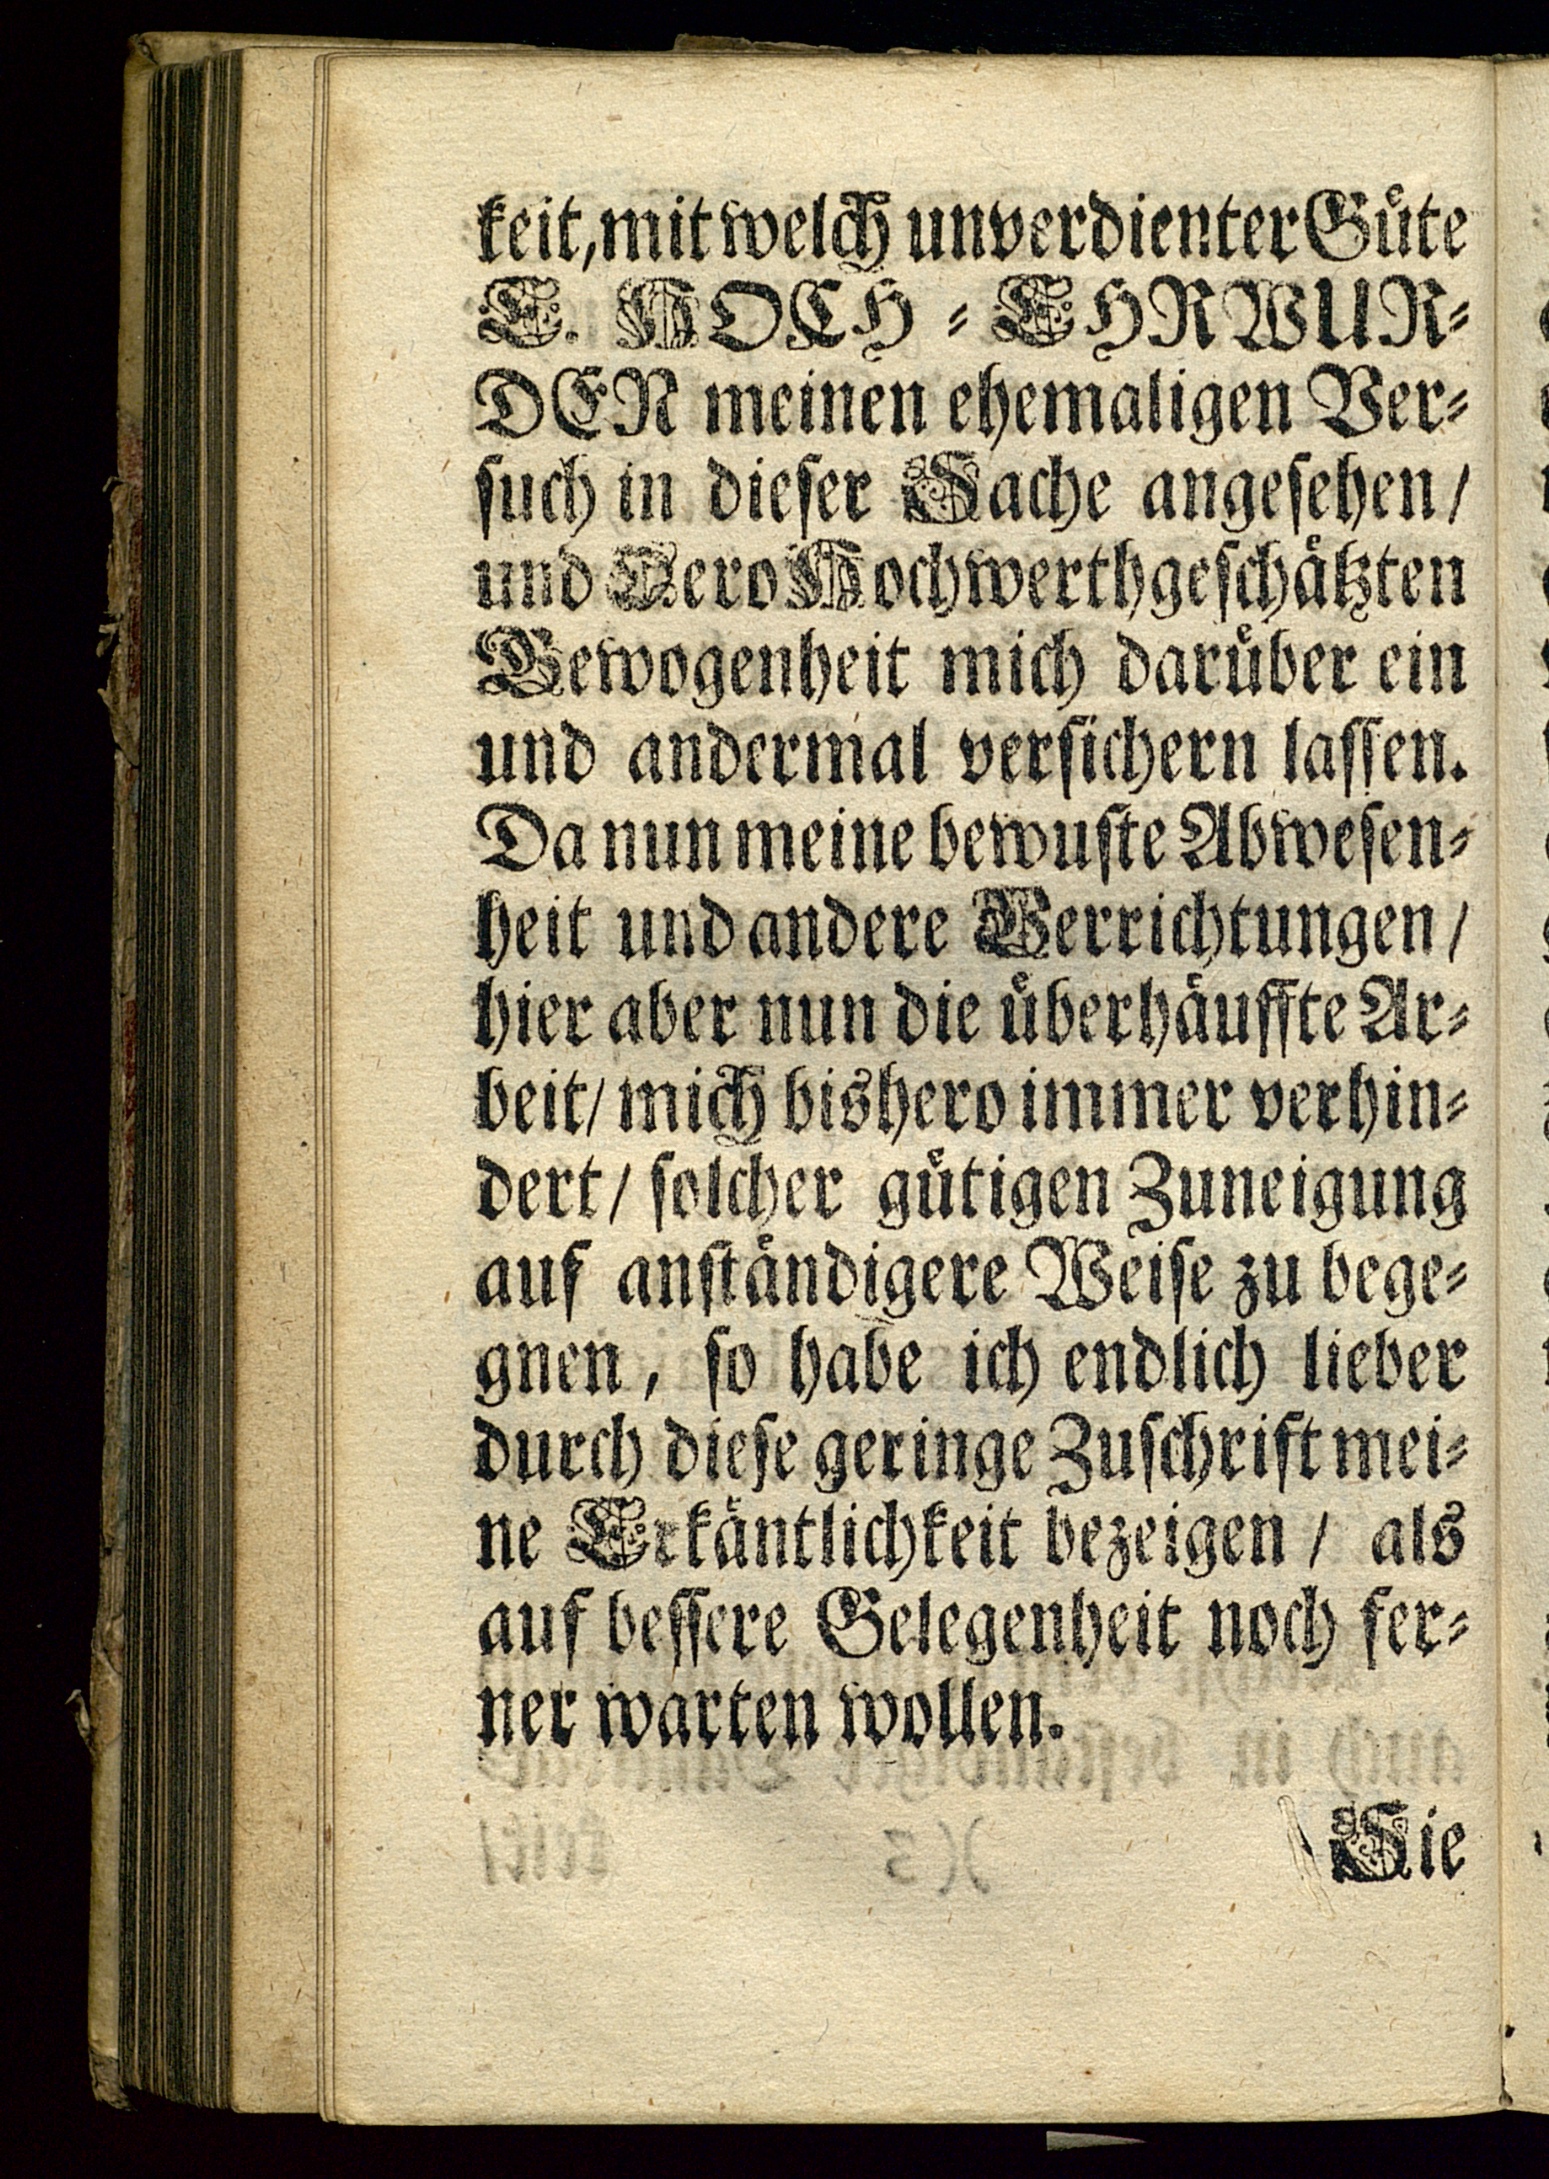 keit, mit welch unverdienter Guͤte
E. HOCH⸗EHRWUR⸗
DEN meinen ehemaligen Ver⸗
ſuch in dieſer Sache angeſehen/
und Dero Hochwerthgeſchaͤtzten
Gewogenheit mich daruͤber ein
und andermal verſichern laſſen.
Da nun meine bewuſte Abweſen⸗
heit und andere Verrichtungen/
hier aber nun die uͤberhaͤuffte Ar⸗
beit/ mich bishero immer verhin⸗
dert/ ſolcher guͤtigen Zuneigung
auf anſtaͤndigere Weiſe zu bege⸗
gnen, ſo habe ich endlich lieber
durch dieſe geringe Zuſchrift mei⸗
ne Erkaͤntlichkeit bezeigen/ als
auf beſſere Gelegenheit noch fer⸗
ner warten wollen.
Sie